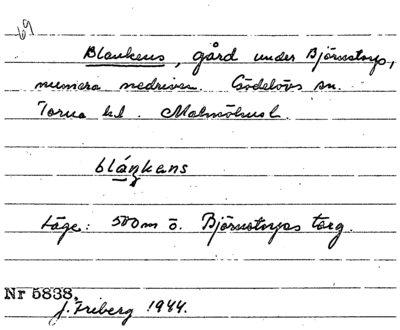 69
Blankens, gård under Björnstorp,
numera nedriven. Gödelövs sn.
Torna hd. Malmöhus l.
bláŋkans
Läge: 500 m ö. Björnstorps torg.
Nr 5838.
J. Friberg 1944.